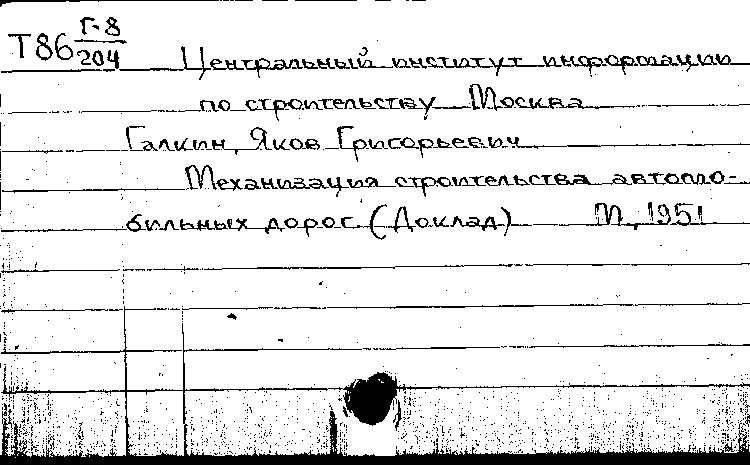 Т86 Г-8/204
Центральный институт информации
по строительству Москва
Галкин, Яков Григорьевич
Механизация строительства автомо-
бильных дорог. (Доклад) М, 1951